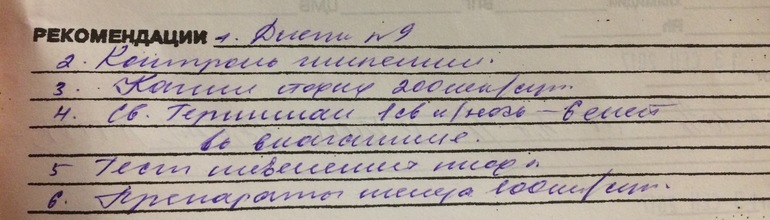 РЕКОМЕНДАЦИИ 1. Диета №9
2. Контроль гликемии.
3. Калия йодид 200мкг/сут.
4. Св. Тержинан 1св н/ночь – 6 дней
во влагалище.
5 Тест шевеления плода
6. Препараты железа 100мг/сут.